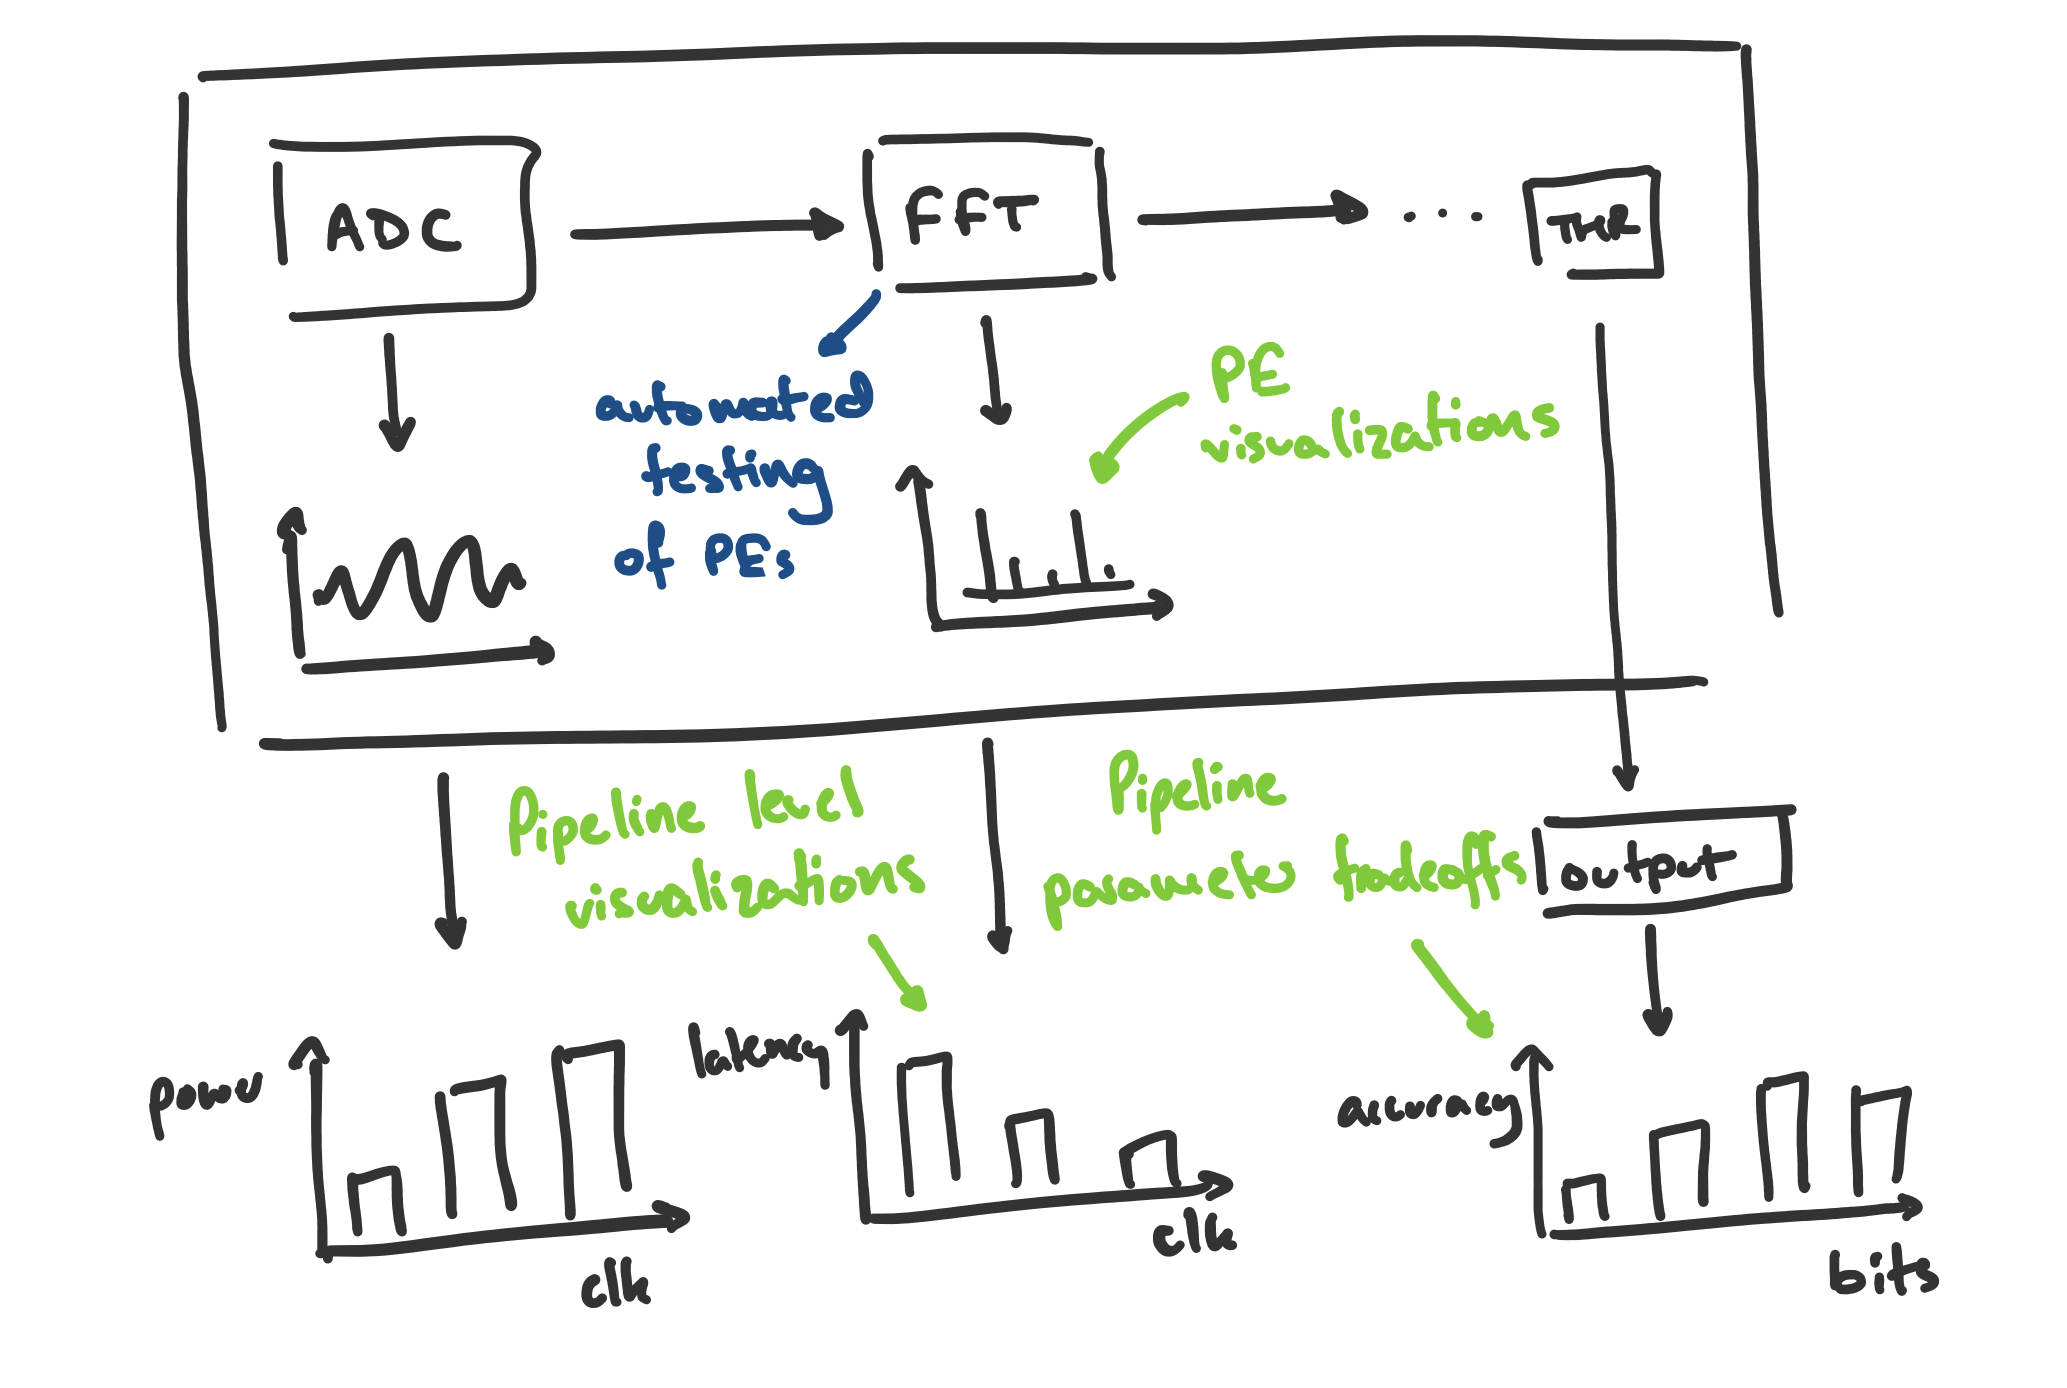 ADC
FFT
...
THR
automated
testing
of PEs
PE
visualizations
Pipeline level
visualizations
Pipeline
parameter tradeoffs
output
power
clk
latency
clk
accuracy
bits